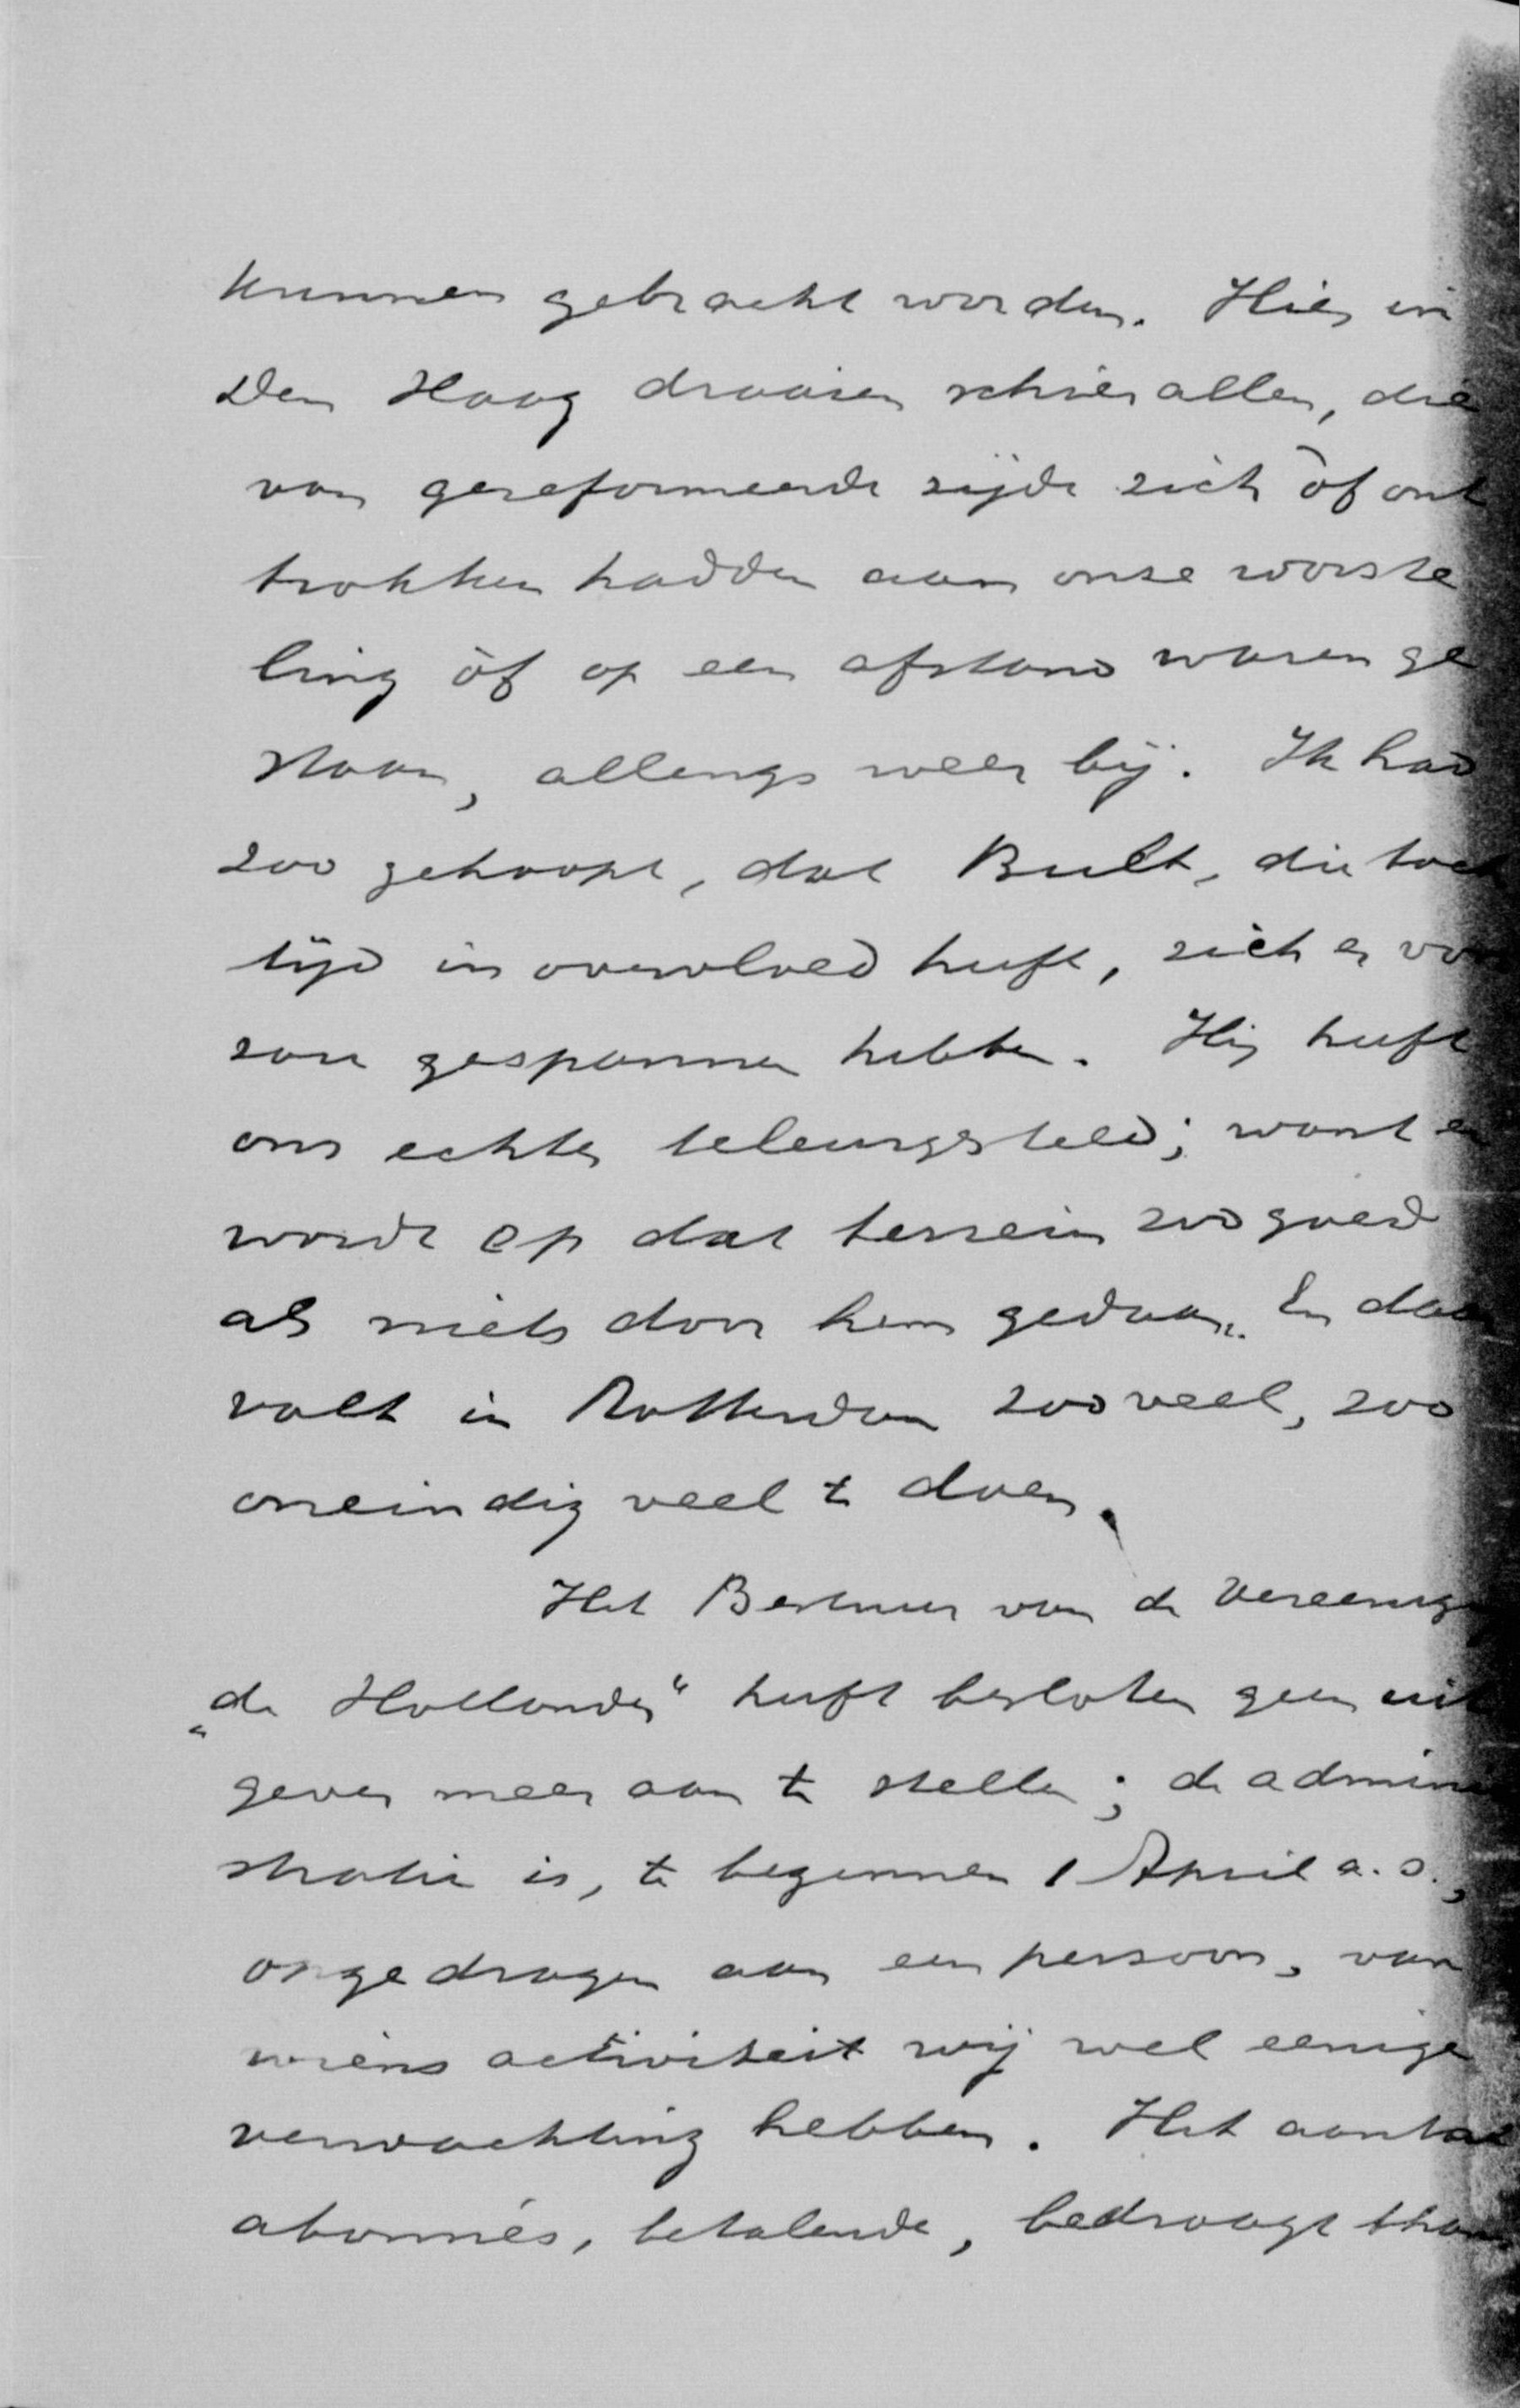 kunnen gebracht worden. Hier in
Den Haag draaien schier allen, die
van gereformeerde zijde zich òf ont
trokken hadden aan onze worste
ling òf op een afstand waren ge
staan, allengs weer bij. Ik had
zoo gehoopt, dat Bult, die toch
tijd in overvloed heeft, zich er voor
zou gespannen hebben. Hij heeft
ons echter teleurgesteld; want er
wordt op dat terrein zoo goed
als niets door hem gedaan. En daar
valt in Rotterdam zooveel, zoo
oneindig veel te doen.
Het Bestuur van de Vereenig
„de Hollander" heeft besloten geen uit
gever meer aan te stellen; de admini
stratie is, te beginnen 1 April a.s.,
opgedragen aan een persoon, van
wiens activiteit wij wel eenige
verwachting hebben. Het aantal
abonnés, betalende, bedraagt thans